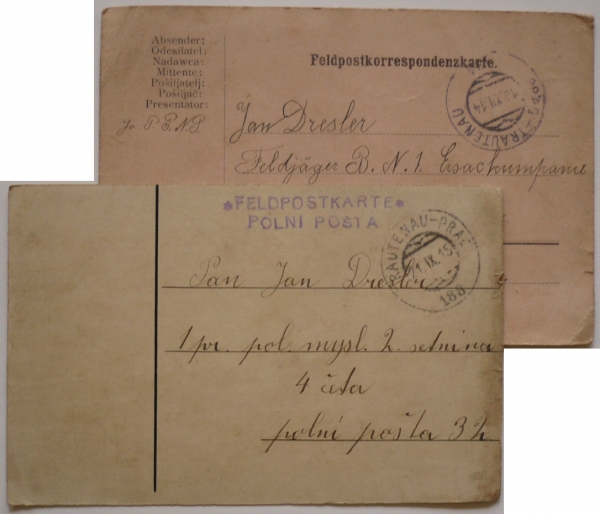 Absender:
Odesílatel:
Nadawca:
Mittente:
Pošiljatelj:
Pošiljač:
Presentator:
Feldpostkorrespondenzkarte.
Jan Dresler
Feldjäger B. N. 1.
TRAUTENAU
*FELDPOSTKARTE*
POLNÍ POŠTA
TRAUTENAU-PRAG
1.IX.15
188
Pan Jan Dresler
1 pr. pol. mysl. 2. setnina
4 četa
polní pošta